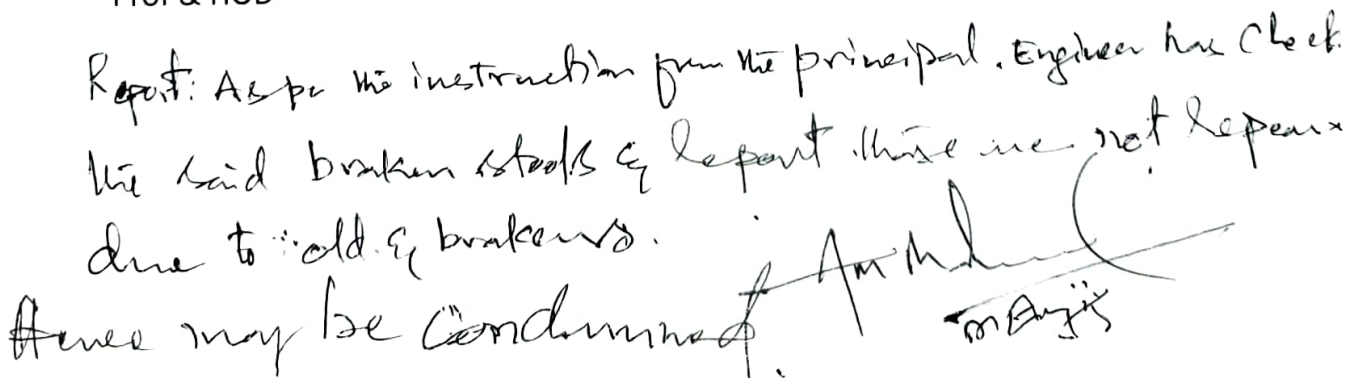 Prof & HOD
Report: As per the instruction from the principal. Engineer has Check
the said broken stools & report. these are not repear
due to old & brakens.
Hence may be Condumned.